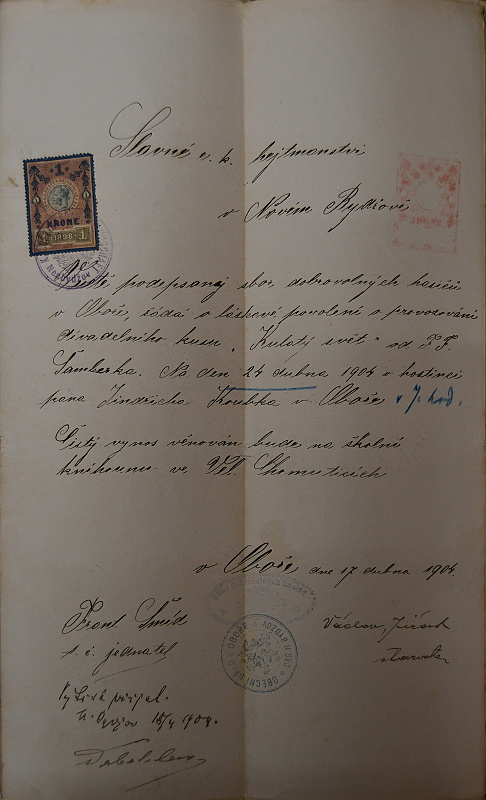 Slavné c. k. hejtmanství
v Novém Bydžově
1
KRONE
1898
Níže podepsaný sbor dobrovolných hasičů
v Oboře, žádá o láskavé povolení o provozování
divadelního kusu „Kulatý svět" od F. F.
Šamberka. Na den 24 dubna 1904 v hostinci
pana Jindřicha Koubka v Oboře v 7. hod.
Čistý vynos věnován bude na školní
knihovnu ve Vel. Chomuticích
v Oboře dne 17. dubna 1904.
Frant. Šmíd
t. č. jednatel
Václav
starosta
přijal
18/4 1904.